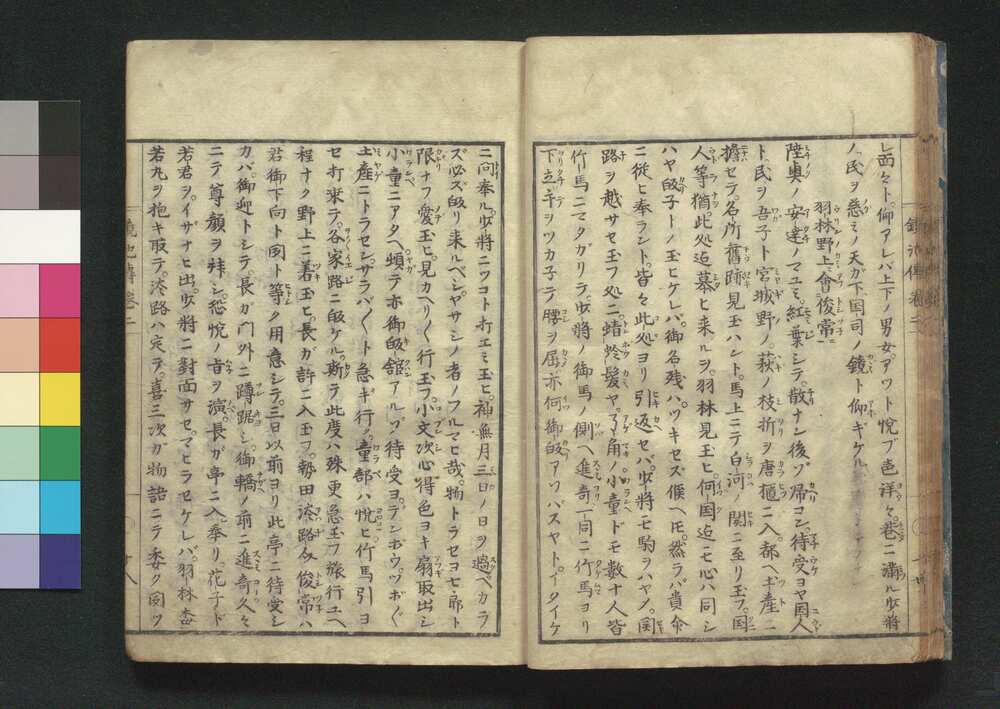 レ面々ト。仰アレバ上下ノ男女。アツト悦ブ邑洋々。巷ニ滿ル少將
ノ民ヲ慈ミノ天ガ下国司ノ鏡ト仰ギケル
羽林野上會俊常
陸奥ノ安達ノマユミ。紅葉シテ。散ナン後ゾ帰コン。待受ヨヤ国人
ト民ヲ吾子ト宮城野ノ。萩ノ枝折ヲ唐櫃ニ入。都ヘギ産ニ
擔セテ。名所舊跡見玉ハント。馬上ニテ白河ノ関ニ至リ玉フ。国
人等猶此処迄慕ヒ来ルヲ。羽林見玉ヒ。何国迄モ心ハ同シ
ハヤ皈子トノ玉ヒケレバ。御名残ハツキセズ候ヘ𪜈。然ラバ貴命
ニ從ヒ奉ラント。皆々此処ヨリ引返セバ。少將モ駒ヲハヤノ。関
路ヲ越サセ玉フ処ニ。蜻蛉髪ヤ。丫角ノ小童ドモ数十人皆
竹馬ニマタガリテ。少將ノ御馬ノ側ヘ進寄。一同ニ竹馬ヨリ
下立。手ヲツカ子テ腰ヲ屈。亦何御皈アソバスヤト。イタイケ
ニ向奉ル。少將ニツコト打エミ玉ヒ。神無月三日ノ日ヲ過ベカラ
ズ。必ズ皈リ来ルベシ。ヤサシノ者ノフルマヒ哉。物トラセヨ七郎ト
限ナフ愛玉ヒ。見カヘリ〱行玉フ。小文次心得色ヨキ扇取出シ
小童ニアタヘ。頓テ亦御皈舘アルゾ待受ヨ。デンボウ。ヅボ〱
土産ニトラセン。サラバ〱ト急ギ行。童部ハ悦ヒ竹馬引ヨ
セ打乗テ。各家路ニ皈ケル。斯テ此度ハ殊更急玉フ旅行ユヘ
程ナク野上ニ着玉ヒ。長ガ許ニ入玉フ。勢田添路等俊常ハ
君御下向ト国ト等ク用意シテ。三日以前ヨリ此亭ニ待受シ
カバ。御迎トシテ。長ガ門外ニ蹲踞シ。御轎ノ前ニ進寄。久々
ニテ尊顔ヲ拝シ。恐悦ノ旨ヲ演。長ガ亭ニ入奉リ。花子ト
若君ヲ。イサナヒ出。少將ニ對面サセマヒラセケレバ。羽林
若丸ヲ抱キ取テ。添路ハ定テ。喜三次ガ物語ニテ委ク国ツ